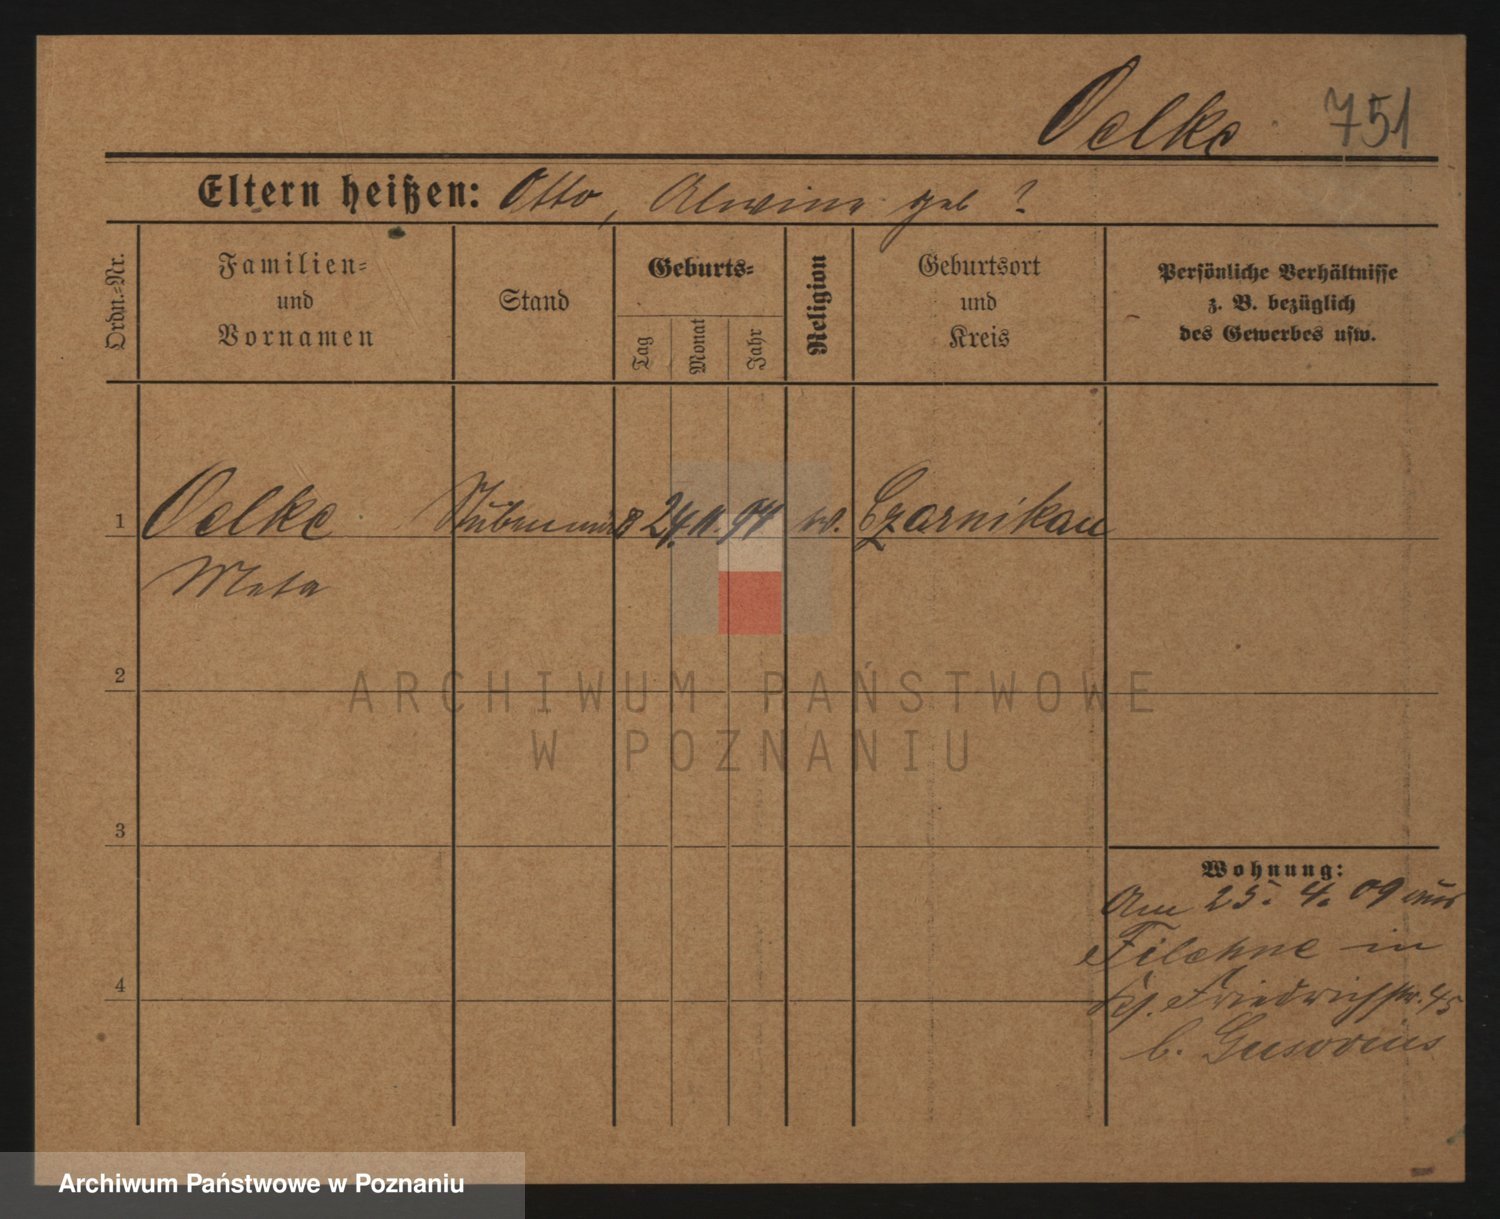 Oelke 751
Eltern heißen: Otto, Alwine geb ?
Ordn.-Nr.
Familien-
und
Vornamen
Stand
Geburts-
Tag
Monat
Jahr
Religion
Geburtsort
und
Kreis
Persönliche Verhältnisse
z. B. bezüglich
des Gewerbes usw.
1 Oelke 24. 11. 94 w. Czarnikau
Meta
2
3
4
Wohnung:
Am 25. 4. 09 aus
Filehne in
Friedrichstr. 45
b. Gusovius
ARCHIWUM PAŃSTWOWE
W POZNANIU
Archiwum Państwowe w Poznaniu